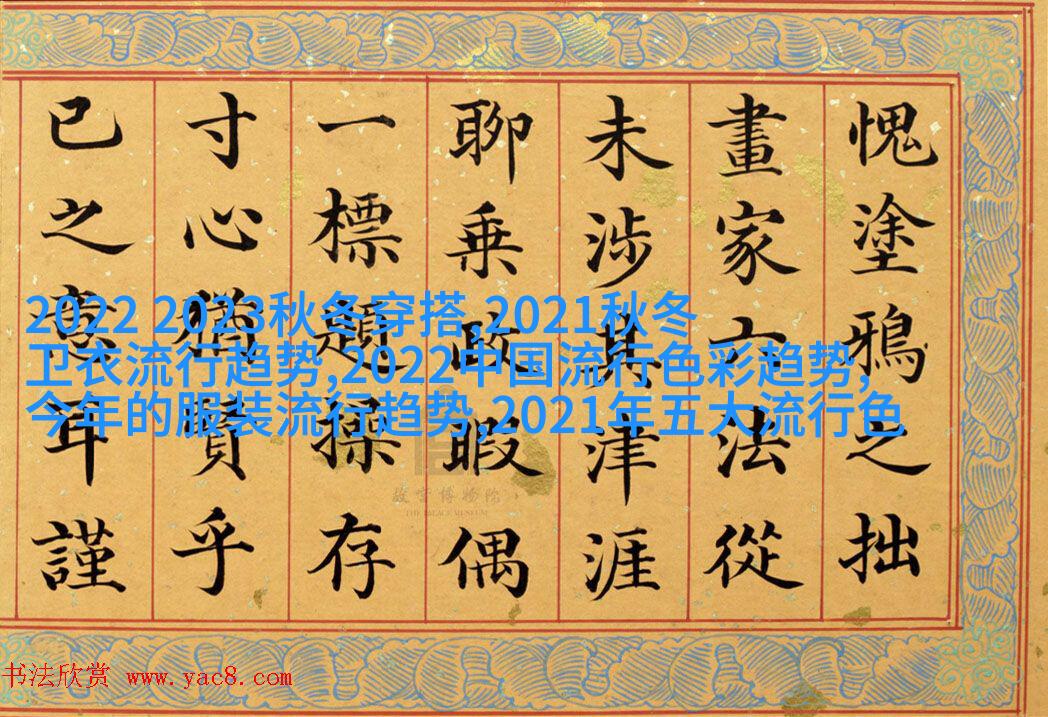 愧塗鴉之拙
畫家六法從
未涉其津涯
聊乘政暇偶
一標題操存
寸心猶賢乎
已之意耳謹
2022 2023秋冬穿搭,2021秋冬
卫衣流行趋势,2022中国流行色彩趋势,
今年的服装流行趋势,2021年五大流行色
故宫博物院
THE PALACE MUSEUM
书法欣赏 www.yac8.com